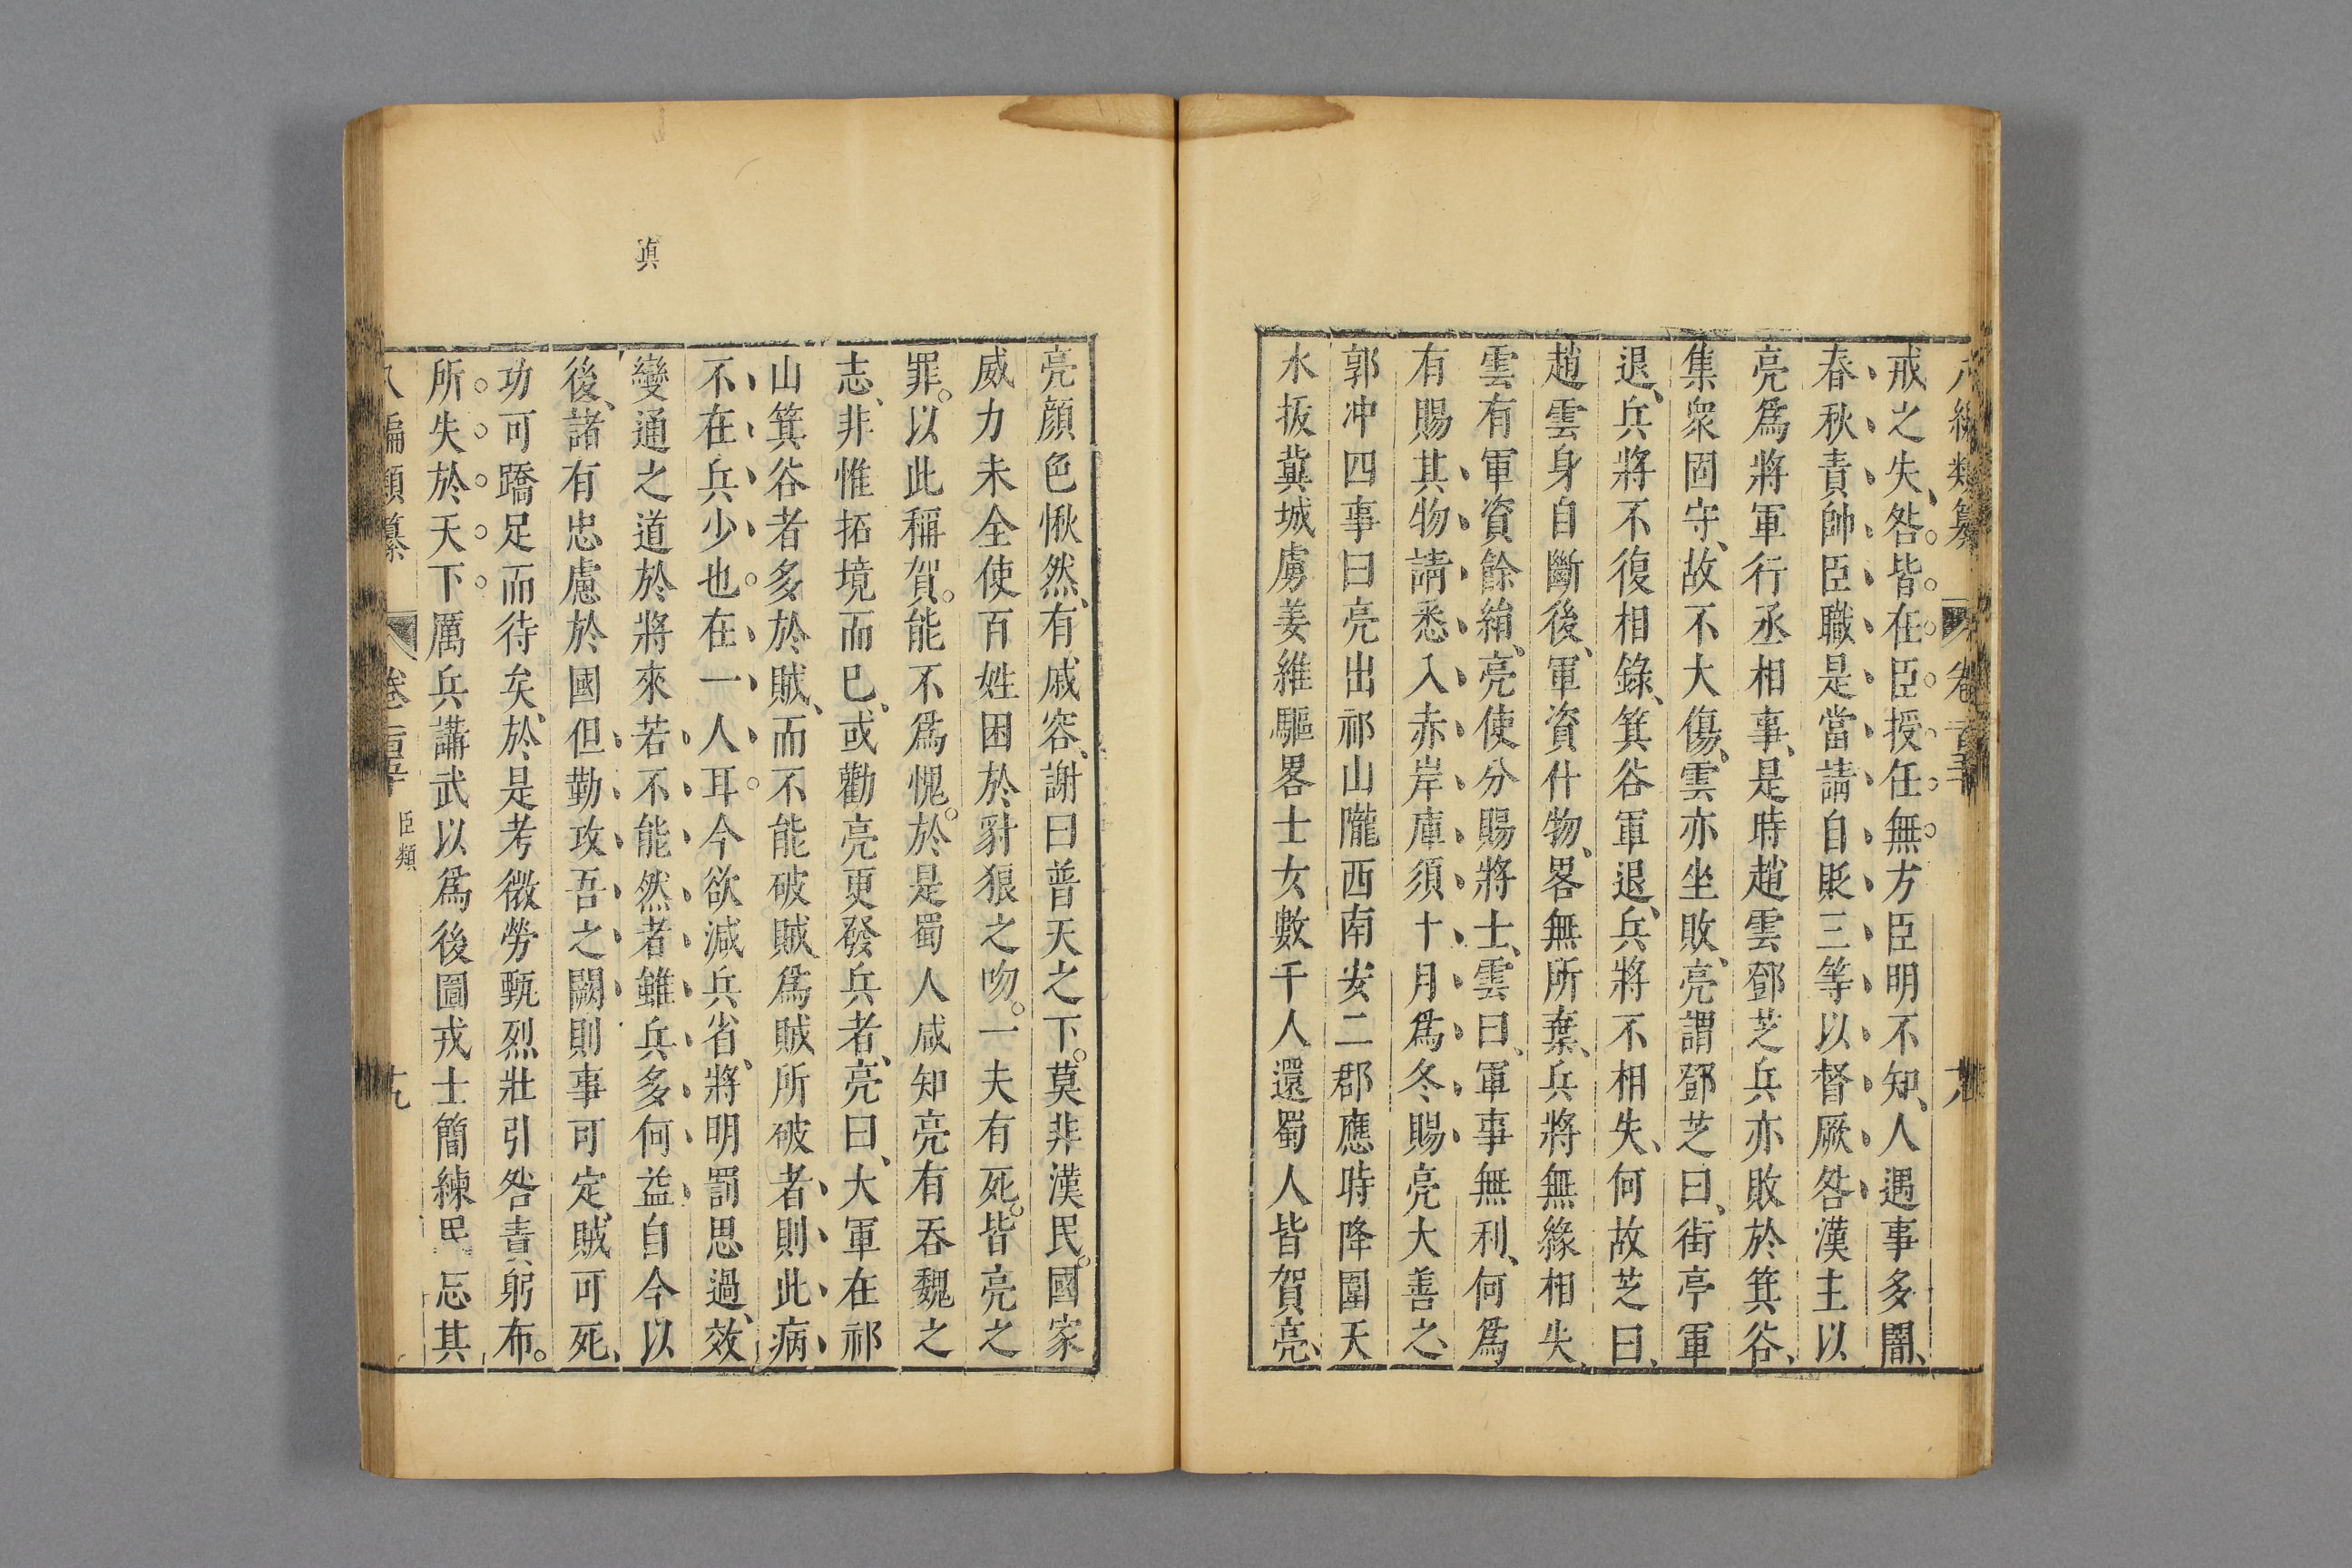 戒之失、咎皆在臣授任無方臣明不知、人遇事多闇、
春秋責帥臣職是當請自貶三等以督厥咎漢主以
亮爲將軍行丞相事、是時趙雲鄧芝兵亦敗於箕谷、
集衆固守、故不大傷、雲亦坐敗、亮謂鄧芝曰、街亭軍
退、兵將不復相錄、箕谷軍退、兵將不相失、何故芝曰、
趙雲身自斷後、軍資什物、畧無所棄、兵將無緣相失、
雲有軍資餘絹、亮使分賜將士、雲曰、軍事無利、何爲
有賜其物請悉入赤岸庫須十月爲冬賜亮大善之
郭冲四事曰亮出祁山隴西南安二郡應時降圍天
水拔冀城虜姜維驅畧士女數千人還蜀人皆賀亮、
亮顏色愀然、有戚容、謝曰普天之下。莫非漢民。國家
威力未全使百姓困於豺狼之吻。一夫有死。皆亮之
罪。以此稱賀。能不爲愧。於是蜀人咸知亮有吞魏之
志、非惟拓境而已、或勸亮更發兵者、亮曰、大軍在祁
山箕谷者多於賊、而不能破賊爲賊所破者則此病
不在兵少也在一人耳今欲減兵省、將明罰思過、效
變通之道於將來若不能然者雖兵多何益自今以
後、諸有忠慮於國但勤攻吾之闕則事可定、賊可死、
功可蹻足而待矣、於是考微勞甄烈壯引咎責躬布。
所失於天下厲兵講武以爲後圖戎士簡練民忘其
編類纂 卷 臣類 十九